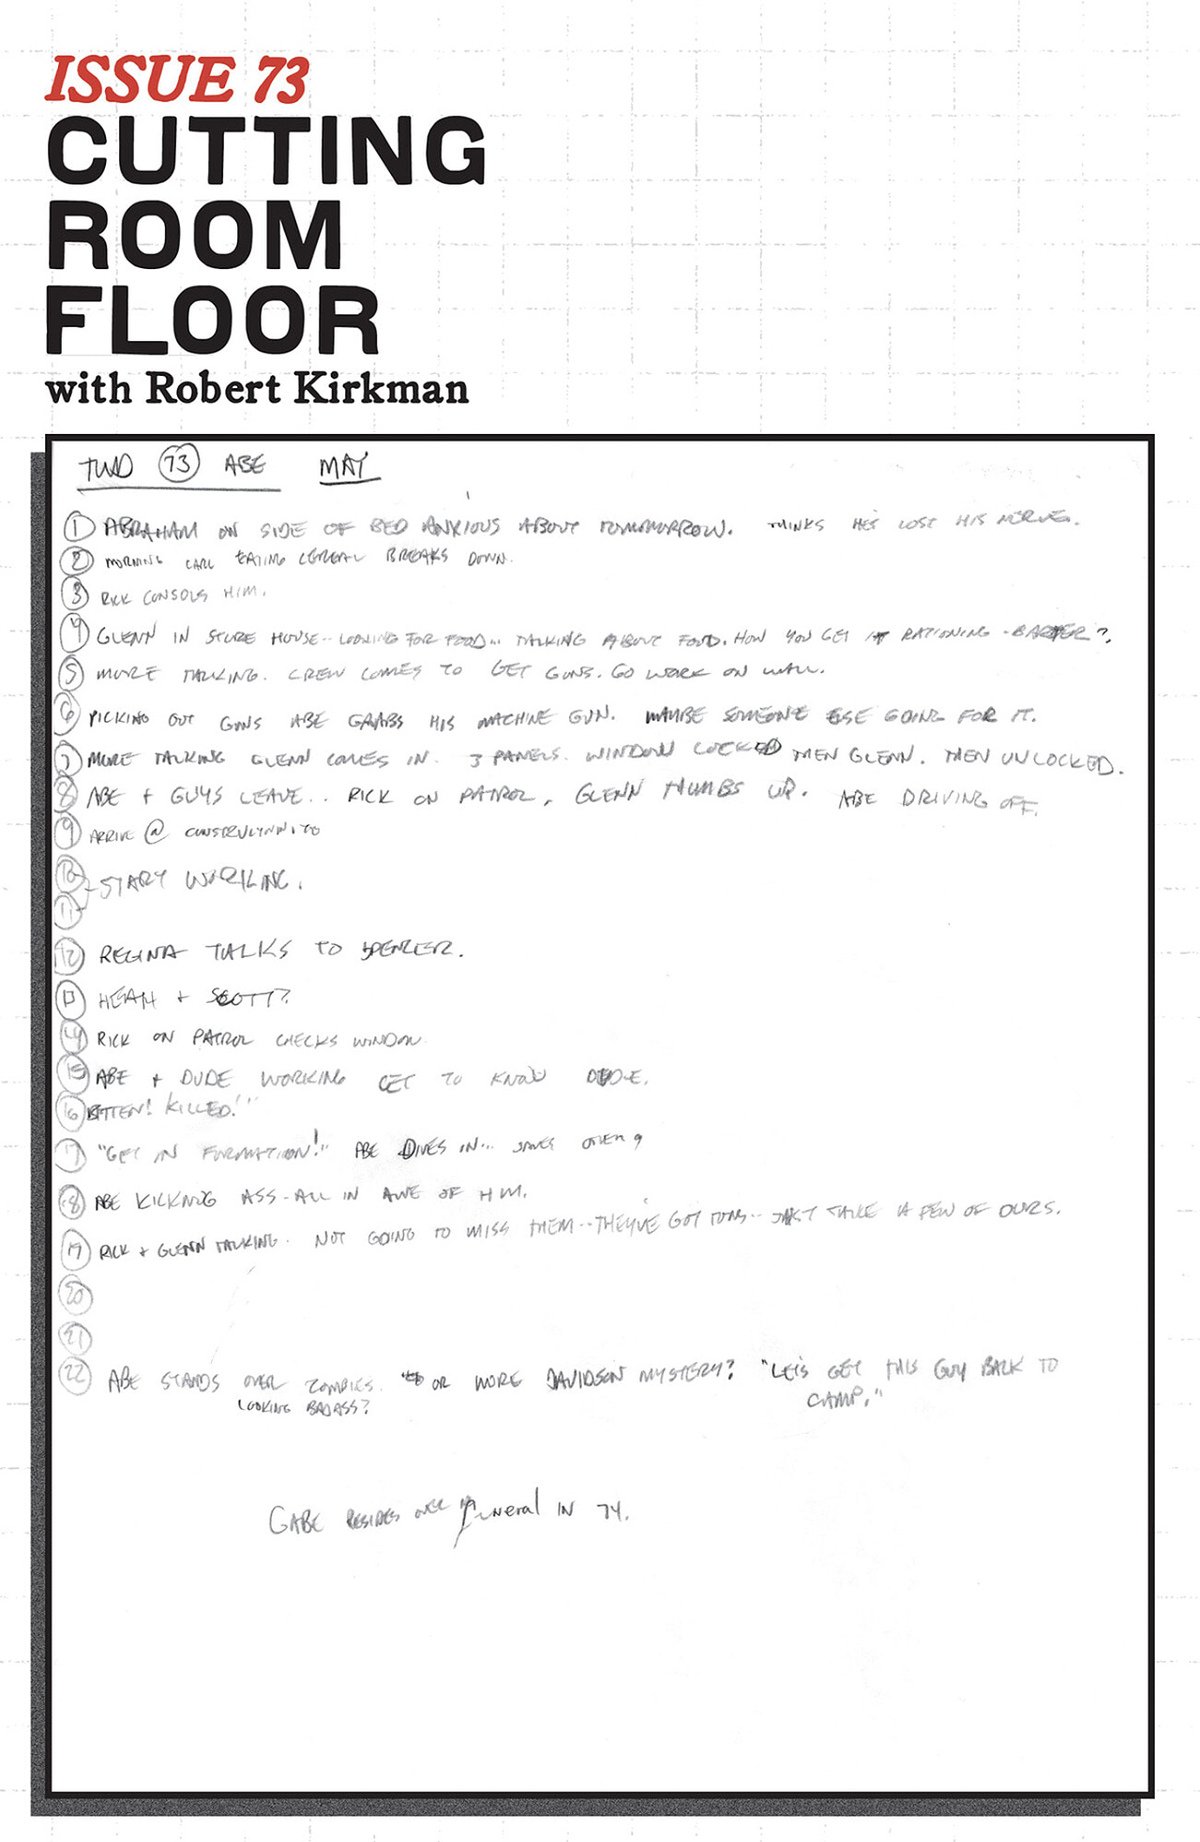 ISSUE 73
CUTTING
ROOM
FLOOR
with Robert Kirkman
TWD 73 ABE MAY
1 ABRAHAM ON SIDE OF BED ANXIOUS ABOUT TOMOMORROW. THINKS HE'S LOST HIS NERVES.
2 MORNING CARL EATING CEREAL BREAKS DOWN.
3 RICK CONSOLS HIM.
4 GLENN IN STORE HOUSE-- LOOKING FOR FOOD... TALKING ABOUT FOOD. HOW YOU GET IT RATIONING - BARTER?
5 MORE TALKING. CREW COMES TO GET GUNS. GO WORK ON WALL.
6 PICKING OUT GUNS ABE GRABS HIS MACHINE GUN. MAYBE SOMEONE ELSE GOING FOR IT.
7 MORE TALKING GLENN COMES IN. 3 PANELS. WINDOW LOCKED THEN GLENN. THEN UNLOCKED.
8 ABE + GUYS LEAVE.. RICK ON PATROL, GLENN THUMBS UP. ABE DRIVING OFF.
9 ARRIVE @
10 START WORKING.
11
12 REGINA TALKS TO SPENCER.
13 HEATH + SCOTT?
14 RICK ON PATROL CHECKS WINDOW
15 ABE + DUDE WORKING GET TO KNOW DUDE.
16 BITTEN! KILLED!
17 "GET IN FORMATION!" ABE DIVES IN... SAVES
18 ABE KICKING ASS - ALL IN AWE OF HIM.
19 RICK + GLENN TALKING. NOT GOING TO MISS THEM -- THEY'VE GOT TONS -- JUST TAKE A FEW OF OURS.
20
21
22 ABE STANDS OVER ZOMBIES. OR MORE DAVIDSON MYSTERY? "LET'S GET THIS GUY BACK TO
LOOKING BADASS? CAMP."
GABE RESIDES OVER funeral IN 74.